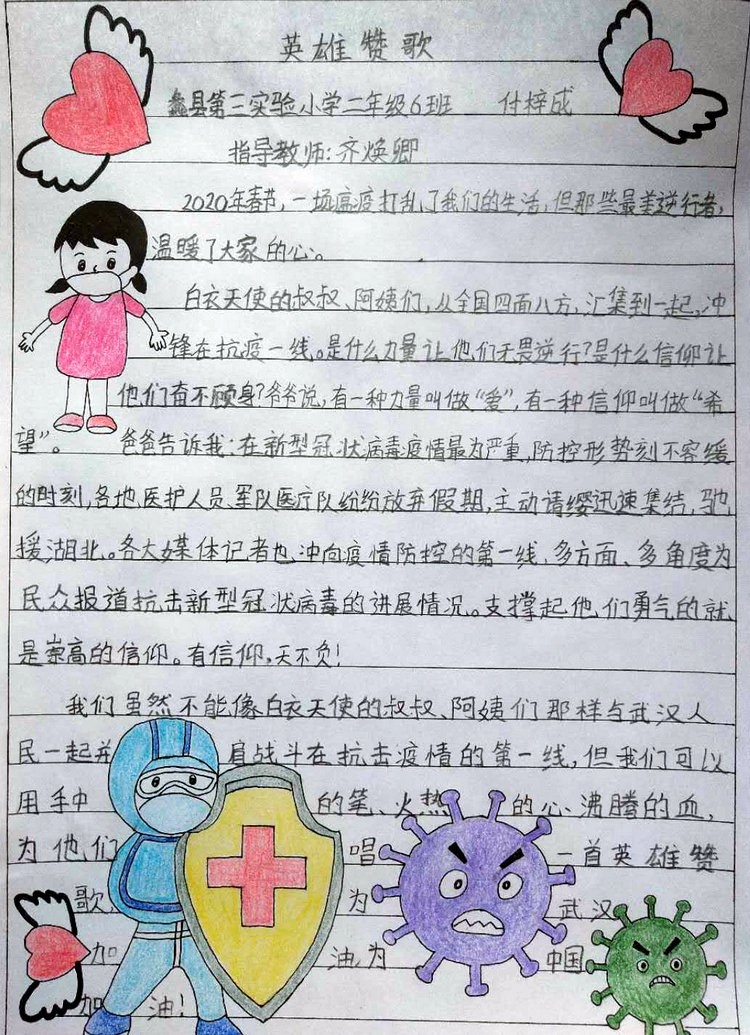 英雄赞歌
蠡县第三实验小学二年级6班 付梓成
指导教师:齐焕卿
2020年春节,一场瘟疫打乱了我们的生活,但那些最美逆行者,
温暖了大家的心。
白衣天使的叔叔、阿姨们,从全国四面八方,汇集到一起,冲
锋在抗疫一线。是什么力量让他们无畏逆行?是什么信仰让
他们奋不顾身?爷爷说,有一种力量叫做“爱”,有一种信仰叫做“希
望”。 爸爸告诉我:在新型冠状病毒疫情最为严重,防控形势刻不容缓
的时刻,各地医护人员、军队医疗队纷纷放弃假期,主动请缨迅速集结,驰
援湖北。各大媒体记者也冲向疫情防控的第一线,多方面、多角度为
民众报道抗击新型冠状病毒的进展情况。支撑起他们勇气的就
是崇高的信仰。有信仰,天不负!
我们虽然不能像白衣天使的叔叔、阿姨们那样与武汉人
民一起并肩战斗在抗击疫情的第一线,但我们可以
用手中的笔、火热的心、沸腾的血,
为他们唱一首英雄赞
歌 为武汉
加油为中国
加油!